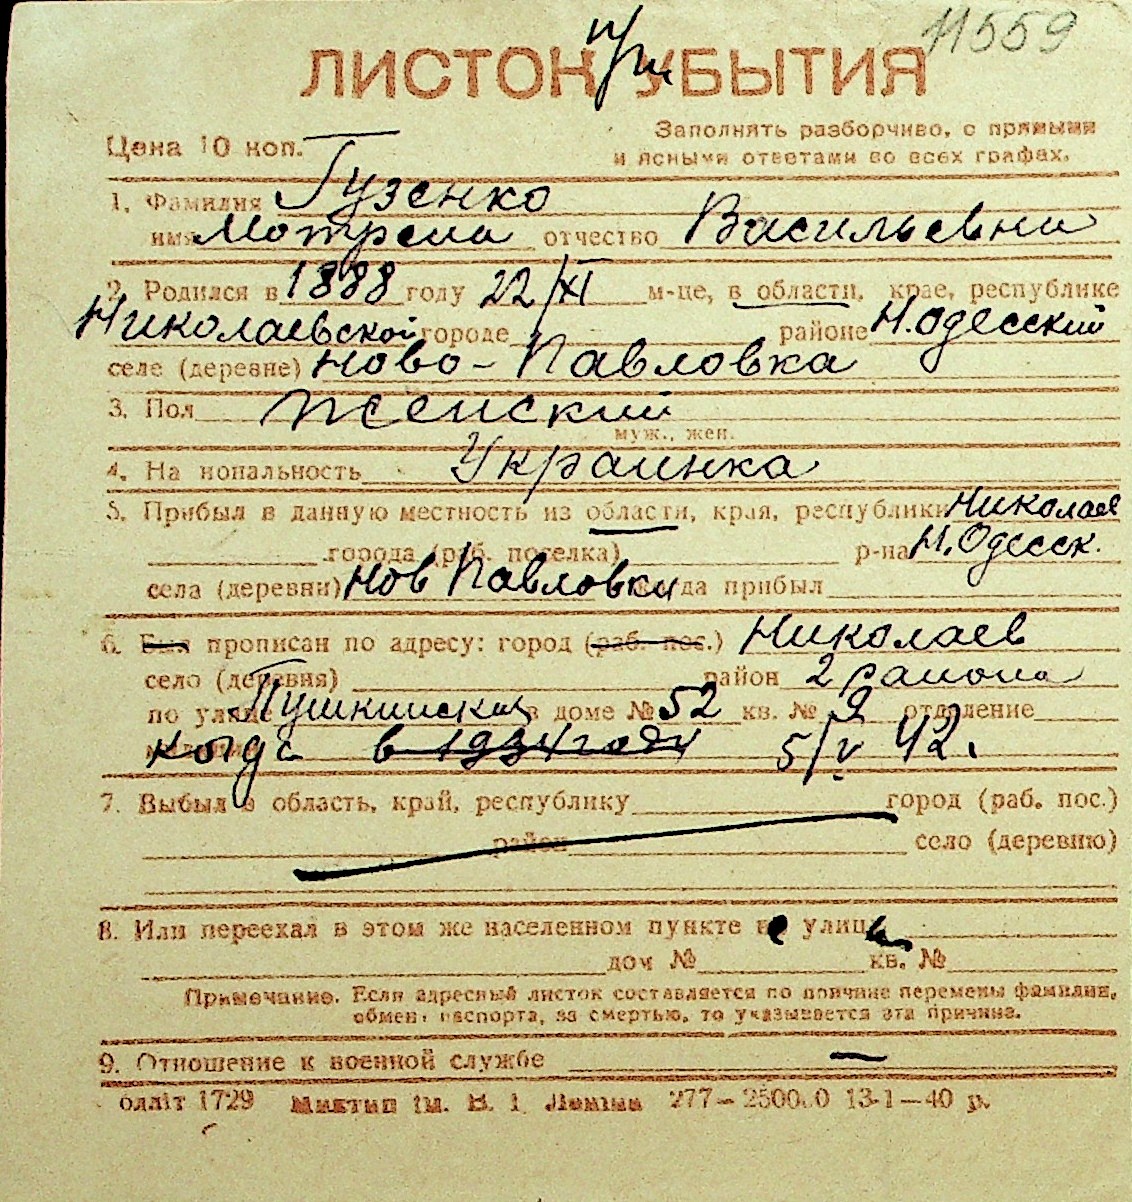 11559
ЛИСТОК УБЫТИЯ
Цена 10 коп.
Заполнять разборчиво, с прямыми
и ясными ответами во всех графах.
1. Фамилия Гузенко
имя Мотрена отчество Васильевна
2. Родился в 1888 году 22/XI м-це, в области, крае, республике
Николаевской городе районе Н.Одесский
селе (деревне) Ново-Павловка
3. Пол Женский
муж., жен.
4. На иональность Украинка
5. Прибыл в данную местность из области, края, республики Николаев
города (раб. поселка) р-на Н.Одесск.
села (деревни) Нов Павловки когда прибыл
6. Был прописан по адресу: город (раб. пос.) Николаев
село (деревня) район 2 района
по улице Пушкинская в доме № 52 кв. № 9 отделение
когда в 1934 году 5/V 42.
7. Выбыл в область, край, республику город (раб. пос.)
район село (деревню)
8. Или переехал в этом же населенном пункте на улицу
дом № кв. №
Примечание. Если адресный листок составляется по причине перемены фамилии,
обмена паспорта, за смертью, то указывается эта причина.
9. Отношение к военной службе —
одліт 1729 ім. В. І. Леніна 277—250000 13-1—40 р.